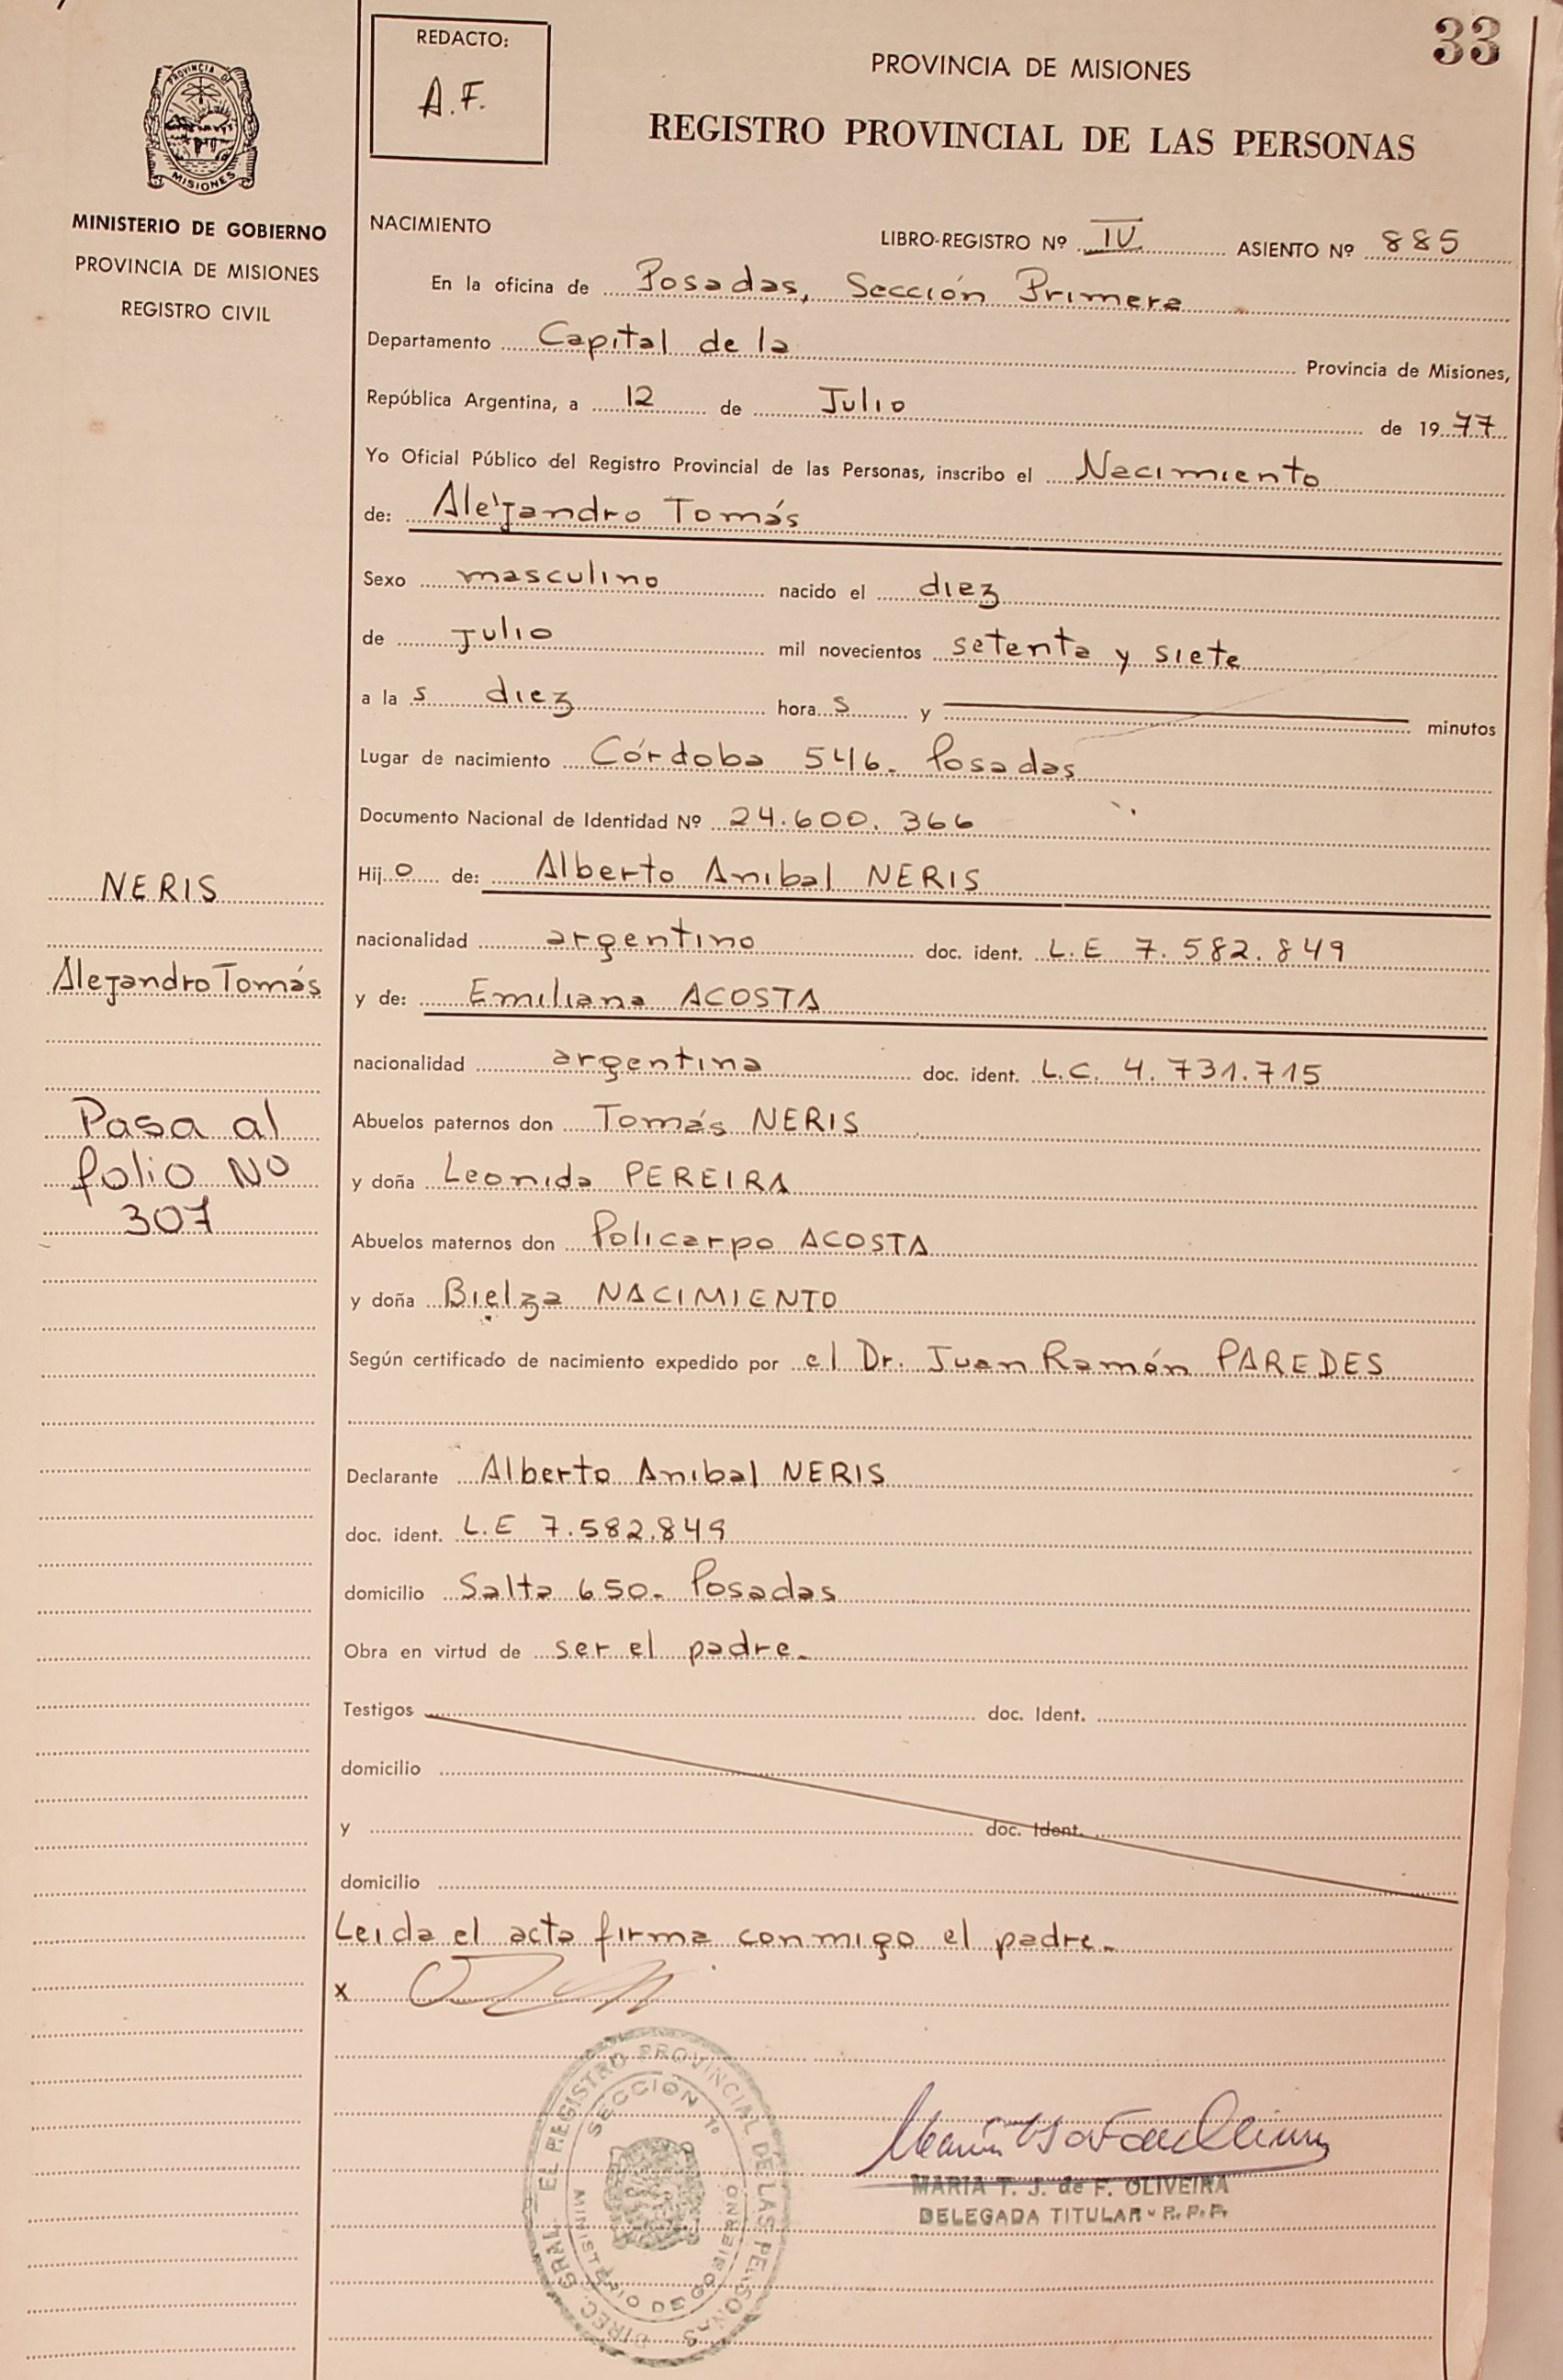 33
REDACTO:
A.F.
PROVINCIA DE MISIONES
REGISTRO PROVINCIAL DE LAS PERSONAS
PROVINCIA DE
MISIONES
MINISTERIO DE GOBIERNO
PROVINCIA DE MISIONES
REGISTRO CIVIL
NERIS
Alejandro Tomás
Pasa al
folio Nº
307
NACIMIENTO
LIBRO-REGISTRO Nº IV ASIENTO Nº 885
En la oficina de Posadas, Sección Primera
Departamento Capital de la Provincia de Misiones,
República Argentina, a 12 de Julio de 1977
Yo Oficial Público del Registro Provincial de las Personas, inscribo el Nacimiento
de: Alejandro Tomás
Sexo masculino nacido el diez
de julio mil novecientos setenta y siete
a la s diez hora s y minutos
Lugar de nacimiento Córdoba 546. Posadas
Documento Nacional de Identidad Nº 24.600.366
Hijo de: Alberto Anibal NERIS
nacionalidad argentino doc. ident. L.E 7.582.849
y de: Emiliana ACOSTA
nacionalidad argentina doc. ident. L.C. 4.731.715
Abuelos paternos don Tomás NERIS
y doña Leonida PEREIRA
Abuelos maternos don Policarpo ACOSTA
y doña Bielza NACIMIENTO
Según certificado de nacimiento expedido por el Dr. Juan Ramón PAREDES
Declarante Alberto Anibal NERIS
doc. ident. L.E 7.582.849
domicilio Salta 650- Posadas
Obra en virtud de ser el padre-
Testigos doc. Ident.
domicilio
y doc. Ident.
domicilio
Leida el acta firma conmigo el padre-
x
DIREC. GRAL. EL REGISTRO PROVINCIAL DE LAS PERSONAS
SECCION 1º
MINISTERIO DE GOBIERNO
MARIA T. J. de F. OLIVEIRA
DELEGADA TITULAR - R. P. P.